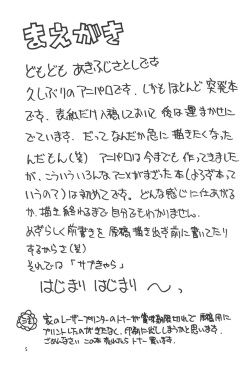 まえがき
どもども あきふじさとしです
久しぶりのアニパロです、しかもほとんど突発本
です、表紙だけ入稿しておいて 後は運まかせに
でています。だってなんだか急に描きたくなった
んだもん(笑) アニパロは今までも 作ってきました
が、こういういろんなアニメがまざった本(ようず本って
いうの?)は初めてです。どんな感じに仕あがる
か、描き終わるまで自分でもわかりません。
めずらしく前書きを 原稿描き出す前に書いてたり
するからさ(笑)
それでは「サブきゃら」
はじまり はじまり 〜っ
家のレーザープリンターのトナーが賞味期限切れで 原稿用に
プリントしたのがきたなく、印刷に出してしまうかと思います。
ごめんなさい この本 売れたら トナー買います。